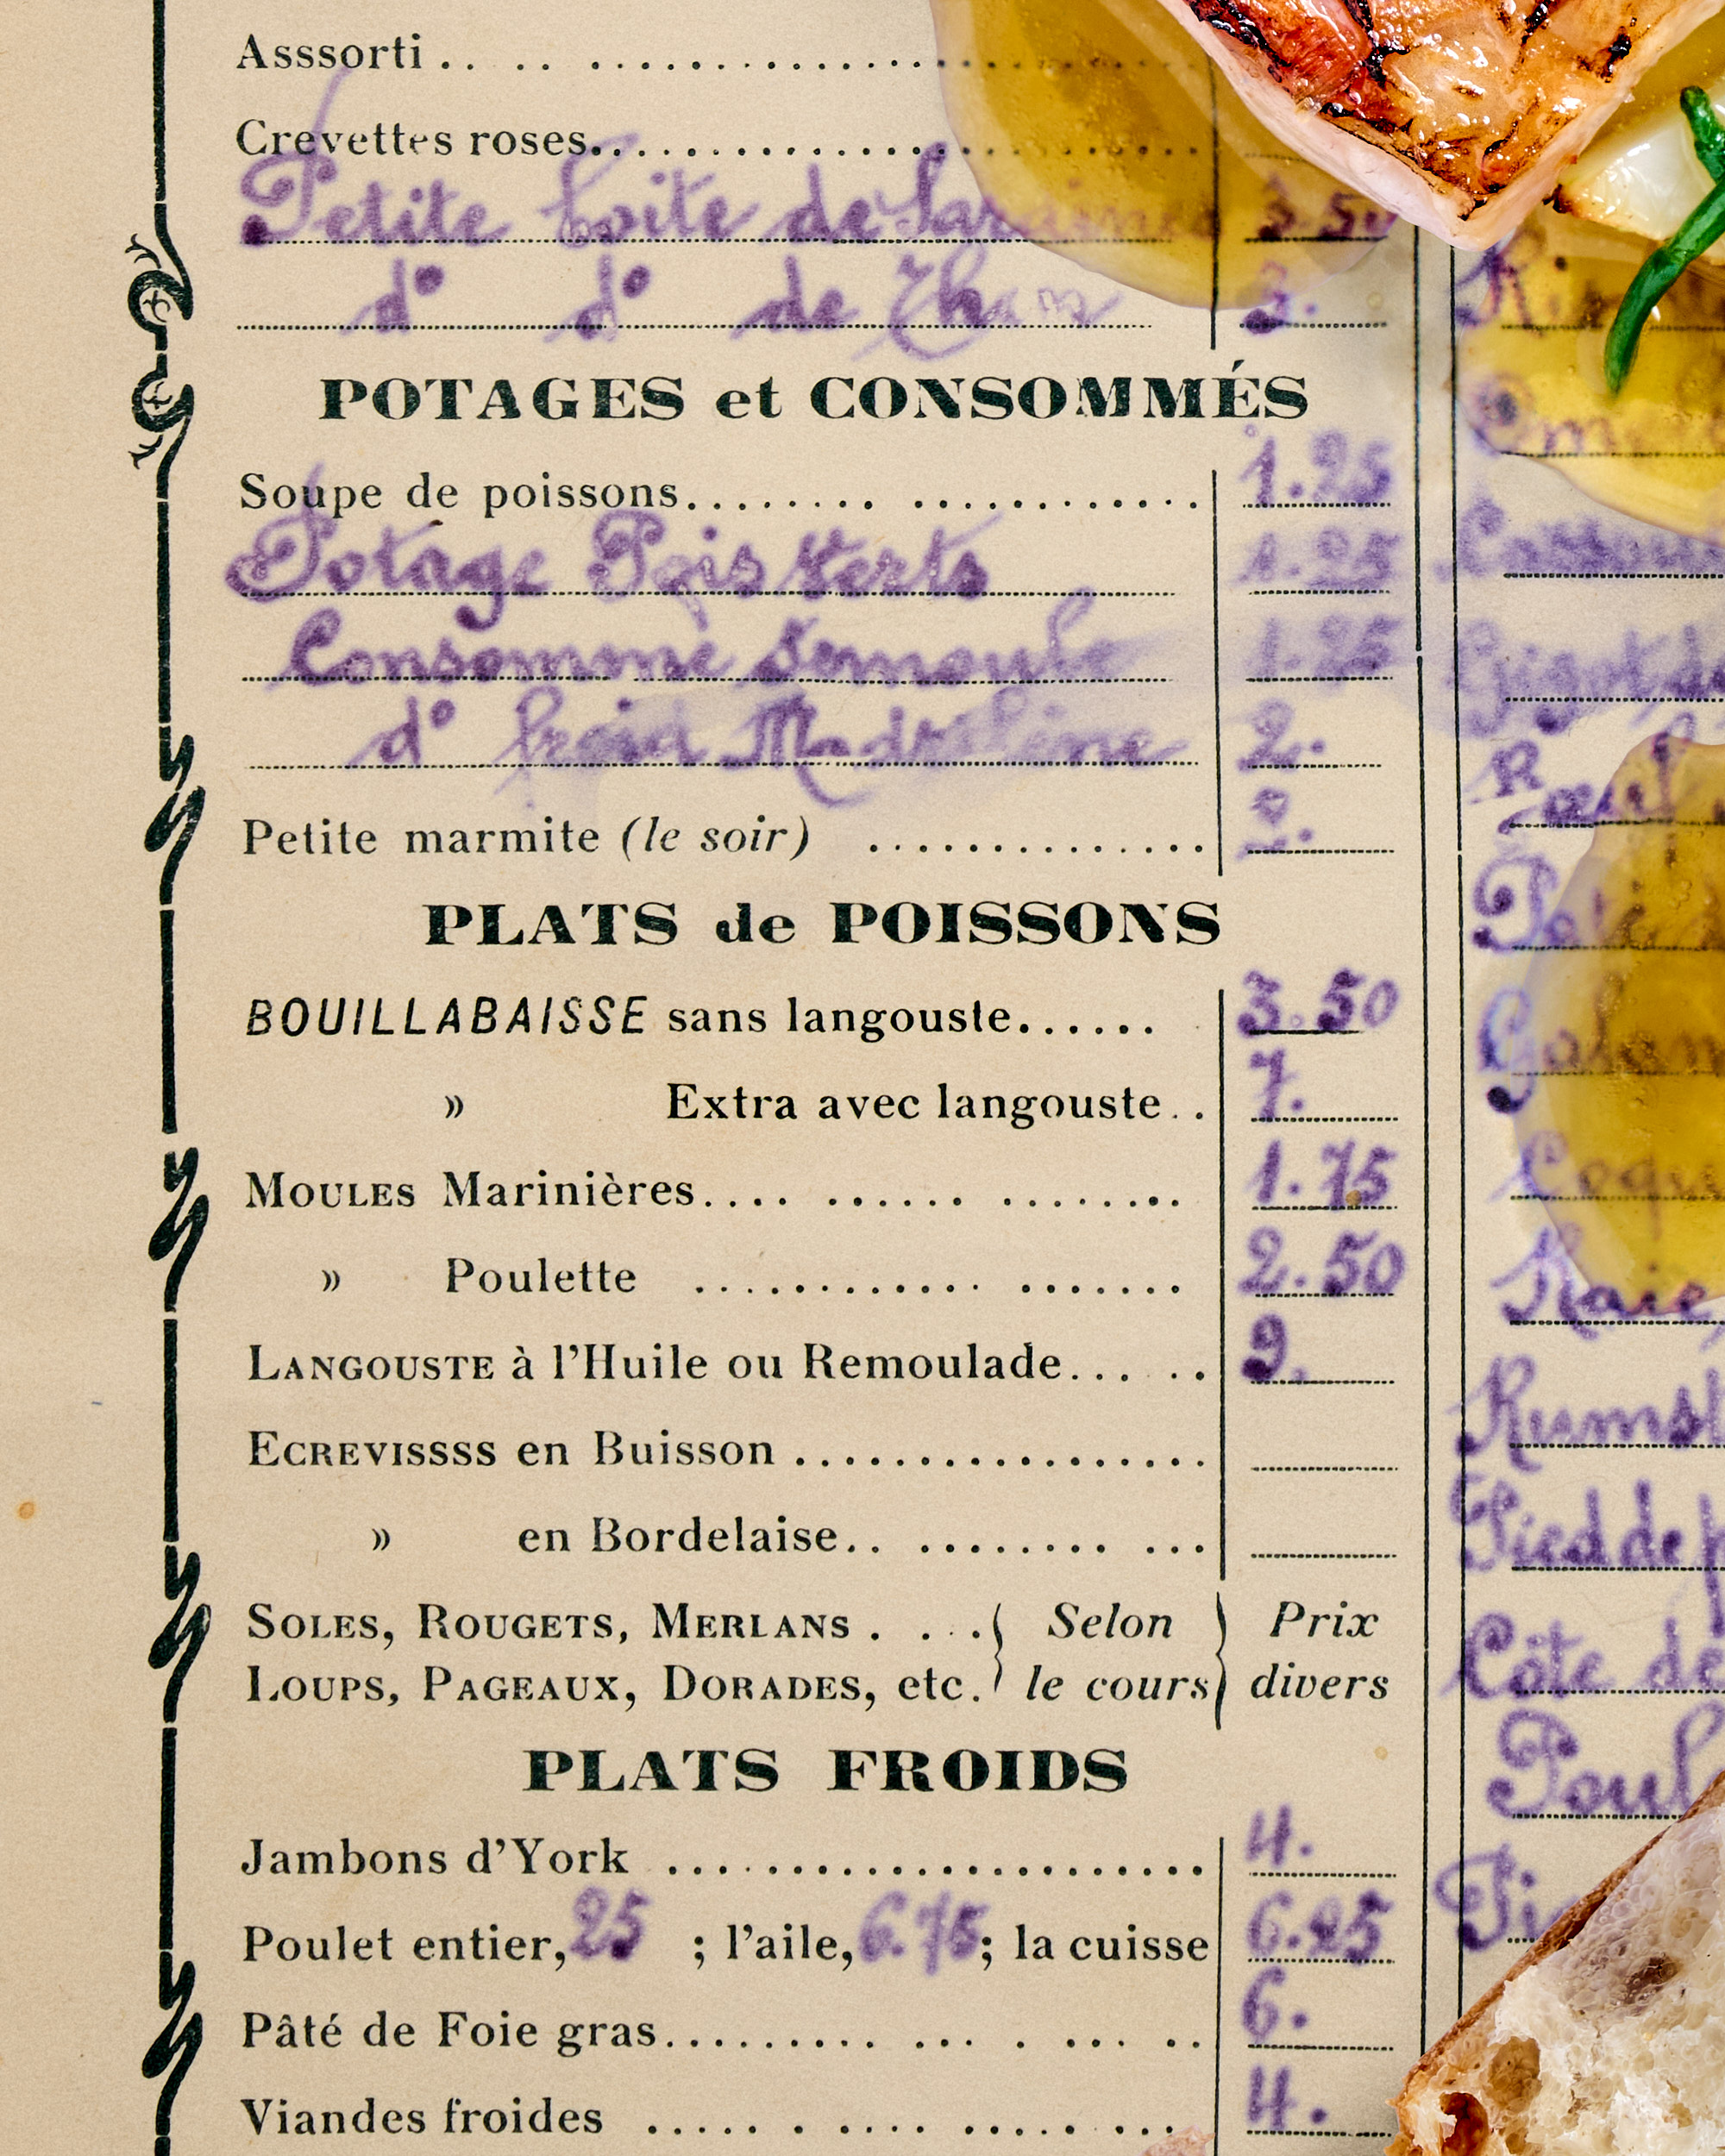 Asssorti
Crevettes roses
Petite boite de Sardines 3.50
d° d° de Thon 3.
POTAGES et CONSOMMÉS
Soupe de poissons 1.25
Potage Pois Verts 1.25
Consommé Semoule 1.25
d° froid Madrilène 2.
Petite marmite (le soir) 2.
PLATS de POISSONS
BOUILLABAISSE sans langouste 3.50
» Extra avec langouste 7.
MOULES Marinières 1.75
» Poulette 2.50
LANGOUSTE à l'Huile ou Remoulade 9.
ECREVISSSS en Buisson
» en Bordelaise
SOLES, ROUGETS, MERLANS Selon Prix
LOUPS, PAGEAUX, DORADES, etc. le cours divers
PLATS FROIDS
Jambons d'York 4.
Poulet entier, 25 ; l'aile, 6.75 ; la cuisse 6.25
Pâté de Foie gras 6.
Viandes froides 4.
Rumst
Pied de p
Côte de
Poul